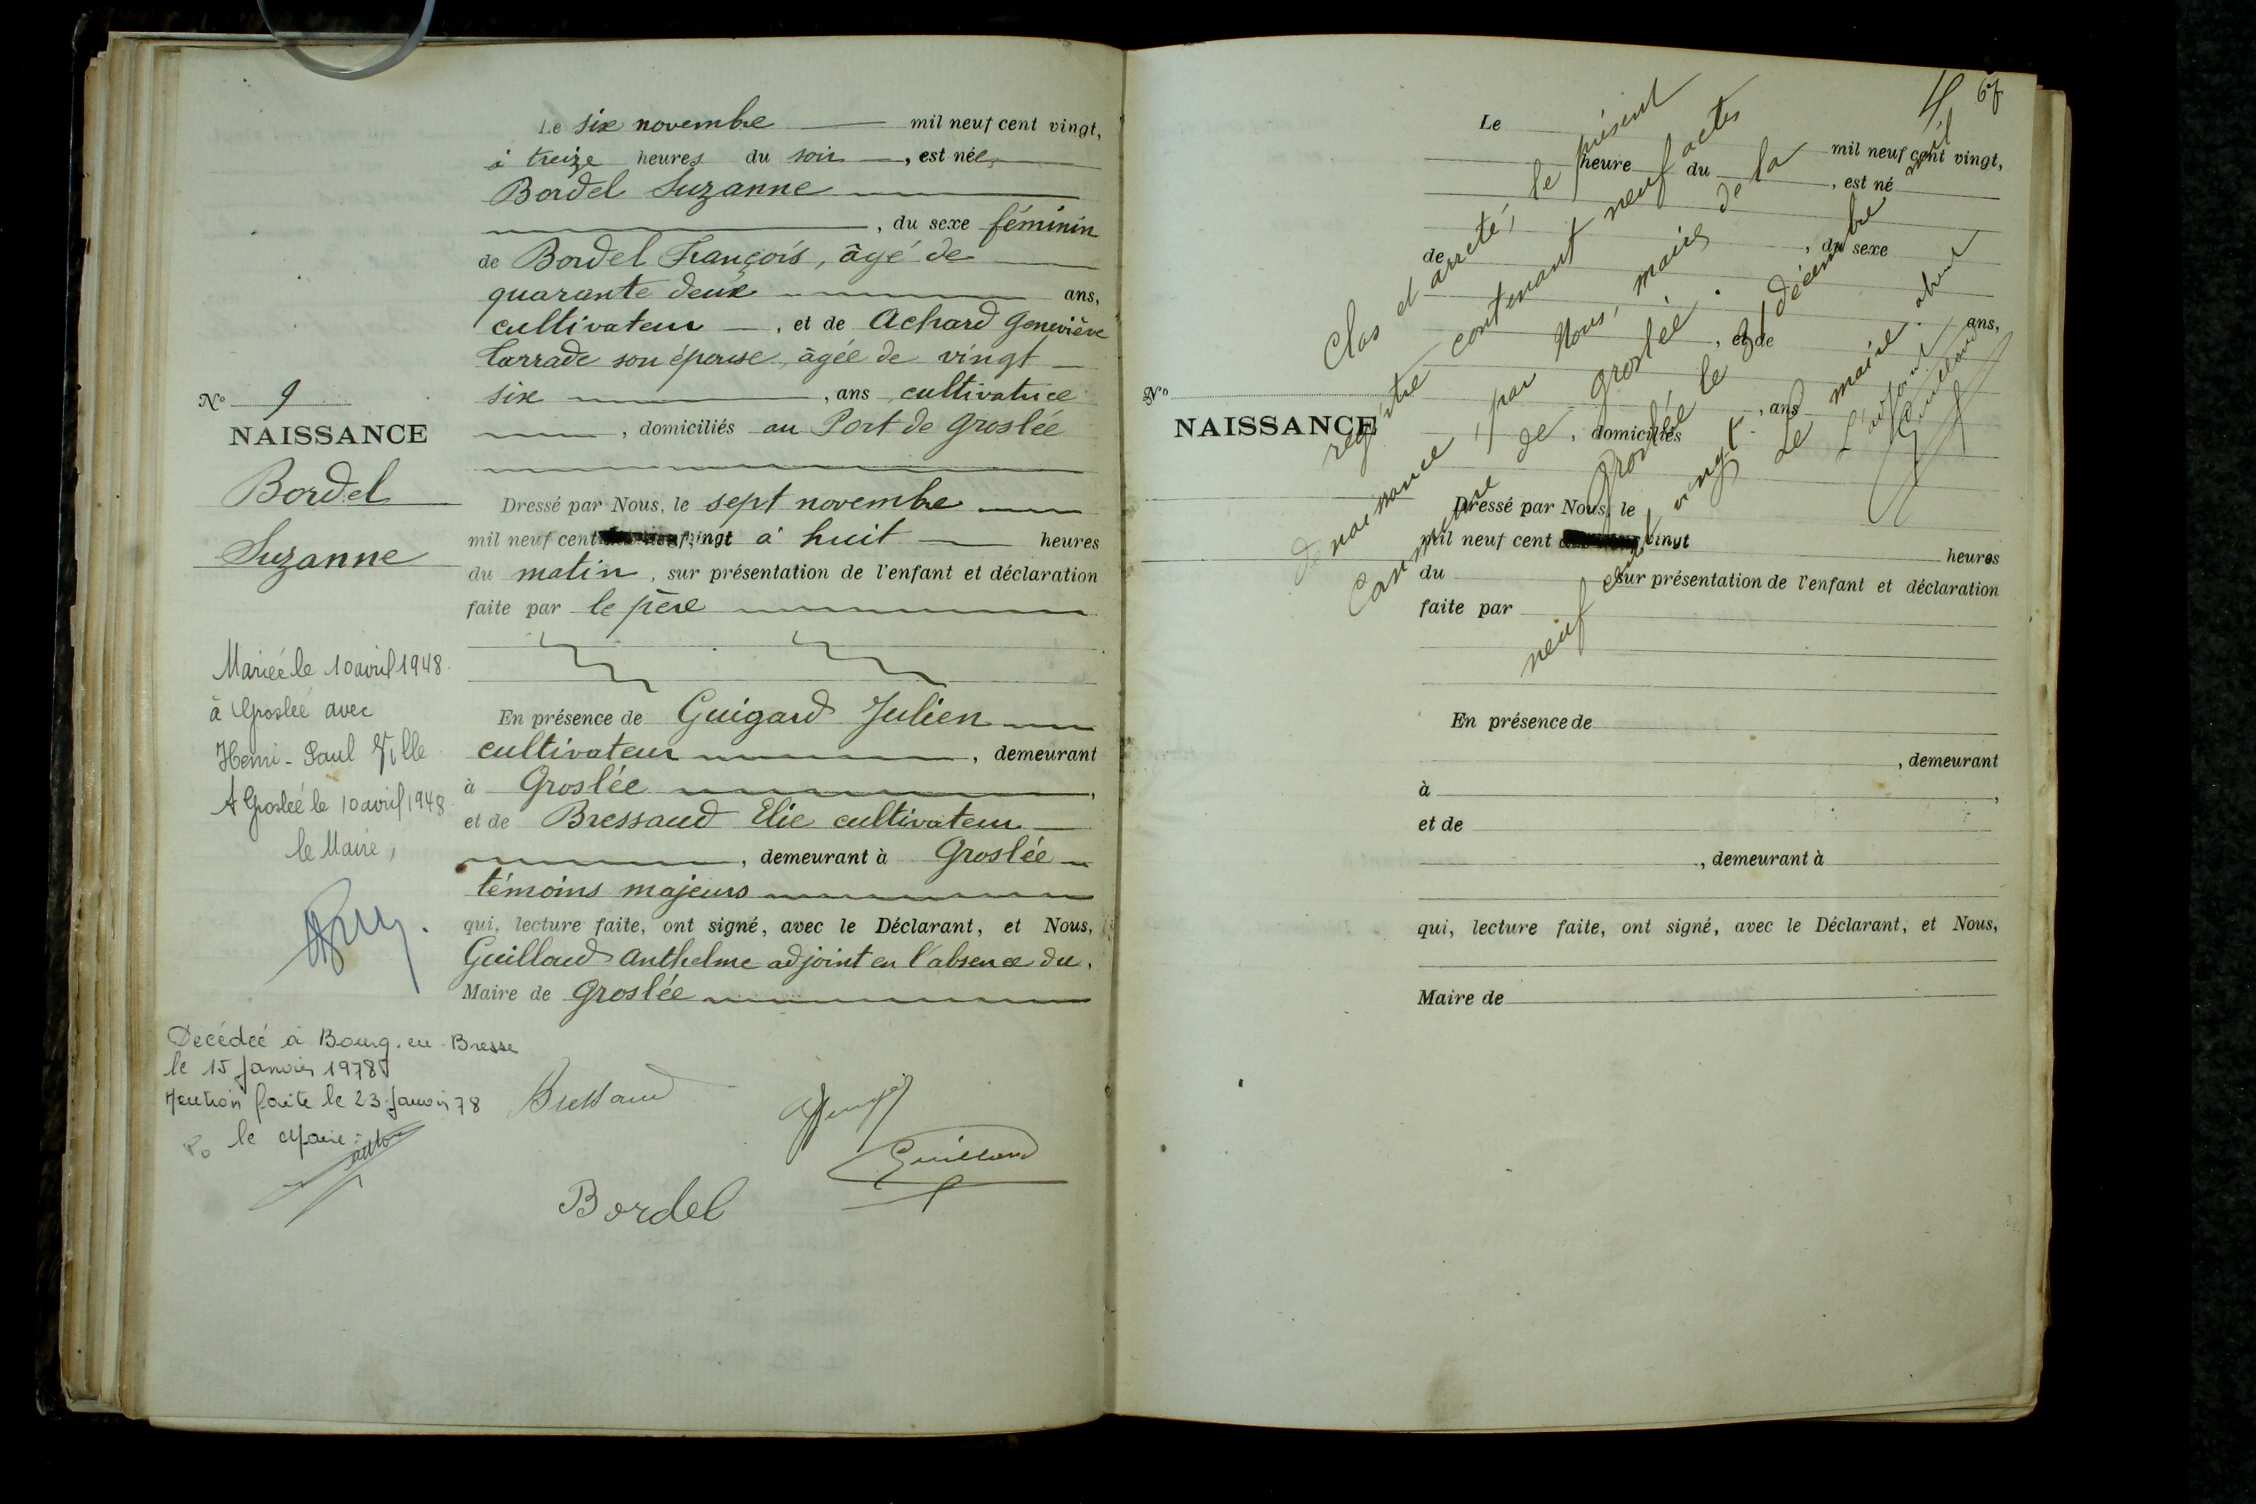 Le six novembre mil neuf cent vingt,
à treize heures du soir, est née,
Bordel Suzanne
, du sexe féminin
de Bordel François, âgé de
quarante deux ans,
cultivateur, et de Achard Geneviève
Larrade son épouse, âgée de vingt
six, ans cultivatrice
, domiciliés au Port de Groslée
N° 9
NAISSANCE
Bordel
Suzanne
Dressé par Nous, le sept novembre
mil neuf cent vingt à huit heures
du matin, sur présentation de l'enfant et déclaration
faite par le père
En présence de Guigard Julien
cultivateur, demeurant
à Groslée,
et de Bressaud Elie cultivateur
, demeurant à Groslée
témoins majeurs
qui, lecture faite, ont signé, avec le Déclarant, et Nous,
Guillaud Anthelme adjoint en l'absence du
Maire de Groslée
Mariée le 10 avril 1948
à Groslée avec
Henri-Paul
A Groslée le 10 avril 1948
le Maire,
Décédée à Bourg-en-Bresse
le 15 Janvier 1978
Mention faite le 23 Janvier 78
Po le Maire
Bressaud
Guillaud
Bordel
67
Le
mil neuf cent vingt,
heure du, est né
, du sexe
de
ans,
, et de
, ans
, domiciliés
N°
NAISSANCE
Dressé par Nous, le
mil neuf cent vingt heures
du sur présentation de l'enfant et déclaration
faite par
En présence de
, demeurant
à,
et de
, demeurant à
qui, lecture faite, ont signé, avec le Déclarant, et Nous,
Maire de
Clos et arreté, le présent
registre contenant neuf actes
de naissance, par Nous, maire de la
Commune de Groslée.
Groslée le 31 décembre mil
neuf cent vingt.
Le maire absent
L'adjoint
Guillaud